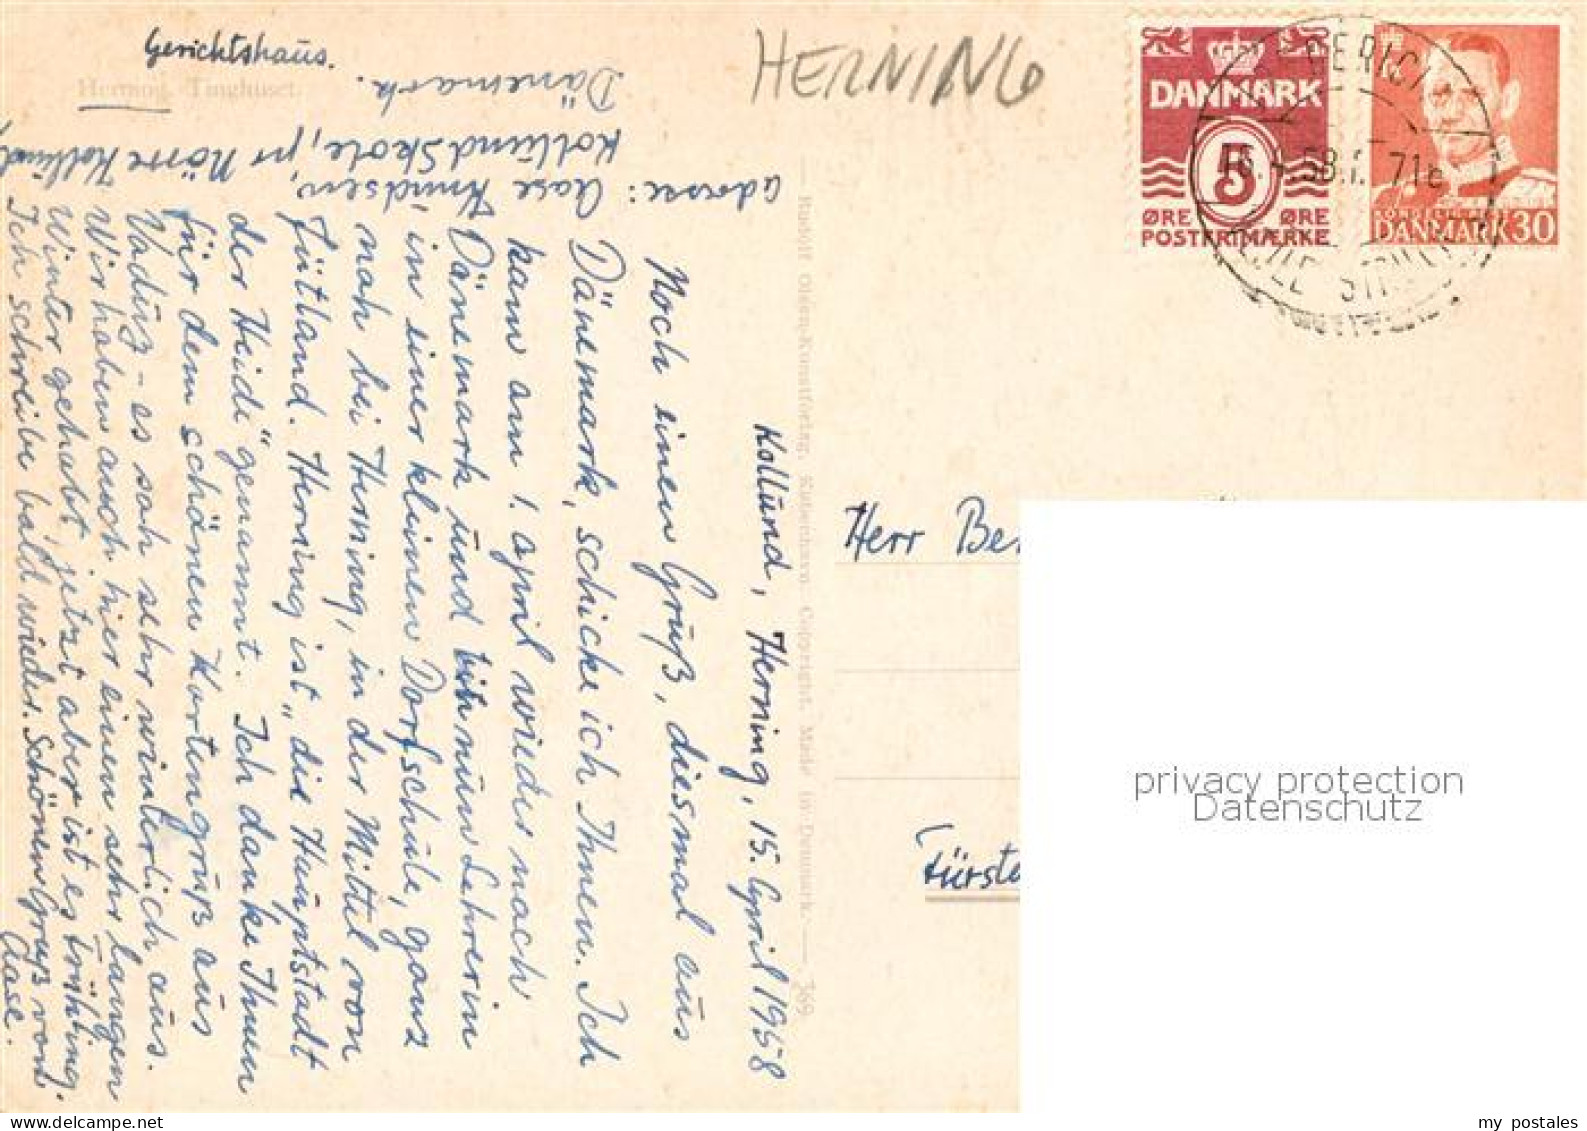 Gerichtshaus.
Herning. Tinghuset.
HERNING
adresse: Aase Knudsen,
Kollund Skole, pr Nörre Kollund,
Dänemark.
Kollund, Herning, 15. April 1958
Noch einen Gruß, diesmal aus
Dänemark, schicke ich Ihnen. Ich
kam am 1. April wieder nach
Dänemark und bin nun Lehrerin
in einer kleinen Dorfschule, ganz
nah bei Herning, in der Mittel von
Jütland. Herning ist „die Hauptstadt
der Heide" genannt. Ich danke Ihnen
für dem schönen Kartengruß aus
Vaduz - es sah sehr winterlich aus.
Wir haben auch hier einen sehr langen
Winter gehabt, jetzt aber ist es Frühling.
Ich schreibe bald wieder. Schönen Gruß von
Aase.
Rudolf Olsens Kunstforlag, København. Copyright. Made in Denmark. 369
DANMARK
5
ØRE ØRE
POSTFRIMÆRKE
DANMARK 30
Herr Be
Fürste
privacy protection
Datenschutz
my postales